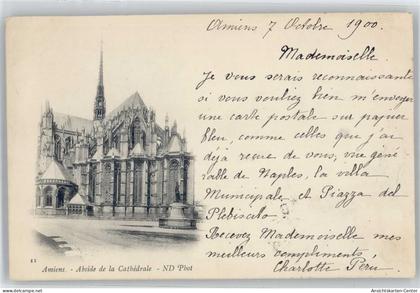 Amiens 7 Octobre 1900.
Mademoiselle
Je vous serais reconnaissante
si vous vouliez bien m'envoyer
une carte postale sur papier
bleu, comme celles que j'ai
déjà reçue de vous, vue géné-
rale de Naples, la villa
Municipale et Piazza del
Plebiscito.
Recevez Mademoiselle mes
meilleurs compliments,
Charlotte Peru
11
Amiens. - Abside de la Cathédrale - ND Phot
www.ansichtskarten-center.de Ansichtskarten-Center